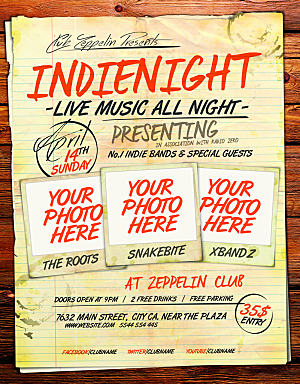 Pub Zeppelin Presents
INDIENIGHT
-LIVE MUSIC ALL NIGHT-
April
14TH
SUNDAY
PRESENTING
IN ASSOCIATION WITH RABID ZERO
No.1 INDIE BANDS & SPECIAL GUESTS
YOUR PHOTO HERE
YOUR PHOTO HERE
YOUR PHOTO HERE
THE ROOTS
SNAKEBITE
XBANDZ
AT ZEPPELIN CLUB
DOORS OPEN AT 9PM | 2 FREE DRINKS | FREE PARKING
7632 MAIN STREET, CITY CA. NEAR THE PLAZA
WWW.WEBSITE.COM 5544 554 445
35$
ENTRY
FACEBOOK/CLUBNAME TWITTER/CLUBNAME YOUTUBE/CLUBNAME